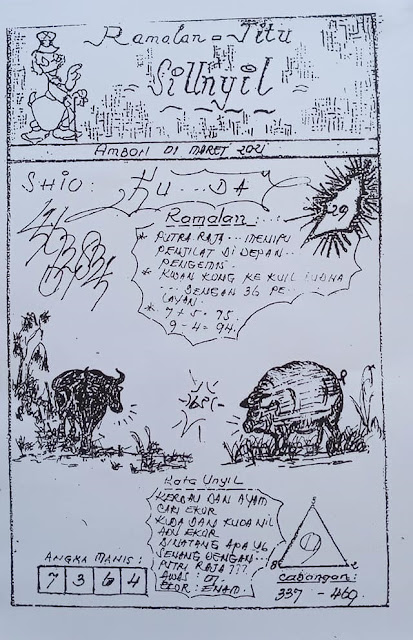 Ramalan = Jitu
SiUnyil
AMBON 01 MARET 2021
SHIO : KU...DA
29
Ramalan :
* PUTRA RAJA... MENIPU
PENJILAT DI DEPAN..
PENGEMIS.
* KWAN KONG KE KUIL BUDHA
... DENGAN 36 PE..
LAYAN.
* 7 + 5 = 75.
9 - 4 = 94.
Kata Unyil
KERBAU DAN AYAM
CARI EKOR
KUDA DAN KUDA NIL
ADU EKOR
BINATANG APA YG
SENANG DENGAN...
PUTRI RAJA ???
AWAS : 07.
EKOR : ENAM.
ANGKA MANIS :
7 3 6 4
9
Cabangan :
337 - 469.